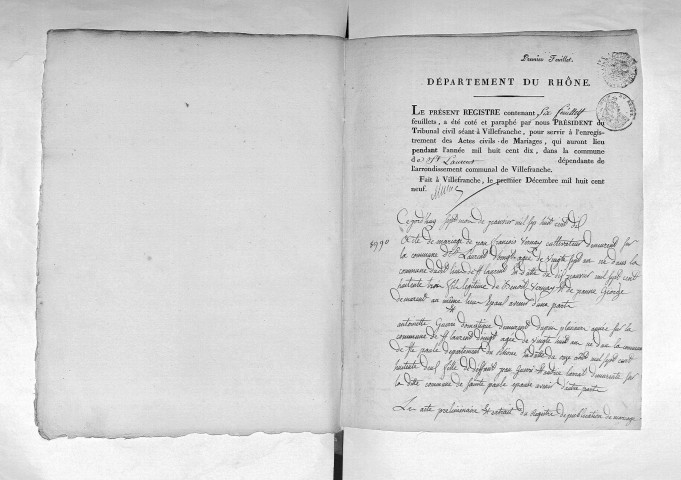 Premier Feuillet.
DÉPARTEMENT DU RHÔNE.
LE PRÉSENT REGISTRE contenant Six feuillets
feuillets, a été coté et paraphé par nous PRÉSIDENT du
Tribunal civil séant à Villefranche, pour servir à l'enregis-
trement des Actes civils de Mariages, qui auront lieu
pendant l'année mil huit cent dix, dans la commune
de St Laurent dépendante de
l'arrondissement communal de Villefranche.
Fait à Villefranche, le premier Décembre mil huit cent
neuf.
Ce jourd'huy sept mois de janvier mil huit cent dix
acte de mariage de françois Vernay cultivateur demeurant sur
la commune de St Laurent d'oingt agé de vingt sept an né dans la
commune dudit lieu de St laurent le dix janvier mil sept cent
huitante trois fils légitime de Benoit Vernay & de George
demeurant au même lieu épaux avenir d'une parte
&
antoinette domestique demeurant depuis plusieur année sur la
commune de St laurent d'oingt agée de vingt huit an née dans la commune
de Ste paule departement du Rhône mil sept cent
huitante deux fille de deffunt & demeurante sur
la dite commune de sainte paule épouse avenir d'autre parte
Les acte preliminaire & extrait du registre de publication de mariage